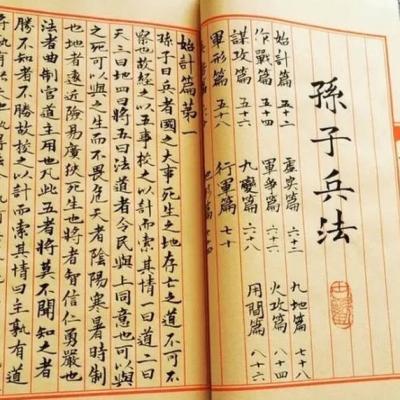 孫子兵法
始計篇 五十二
作戰篇 五十四
謀攻篇 五十六
軍形篇 五十八
虛實篇 六十二
軍爭篇
九變篇 六十八
行軍篇 七十
九地篇 七十八
火攻篇 八十四
用間篇 八十六
始計篇第一
孫子曰兵者國之大事死生之地存亡之道不可不
察也故經之以五事校之以計而索其情一曰道二曰
天三曰地四曰將五曰法道者令民與上同意也可以與
之死可以與之生而不畏危天者陰陽寒暑時制
也地者遠近險易廣狹死生也將者智信仁勇嚴也
法者曲制官道主用也凡此五者將莫不聞知之者
勝不知者不勝故校之以計而索其情曰主孰有道